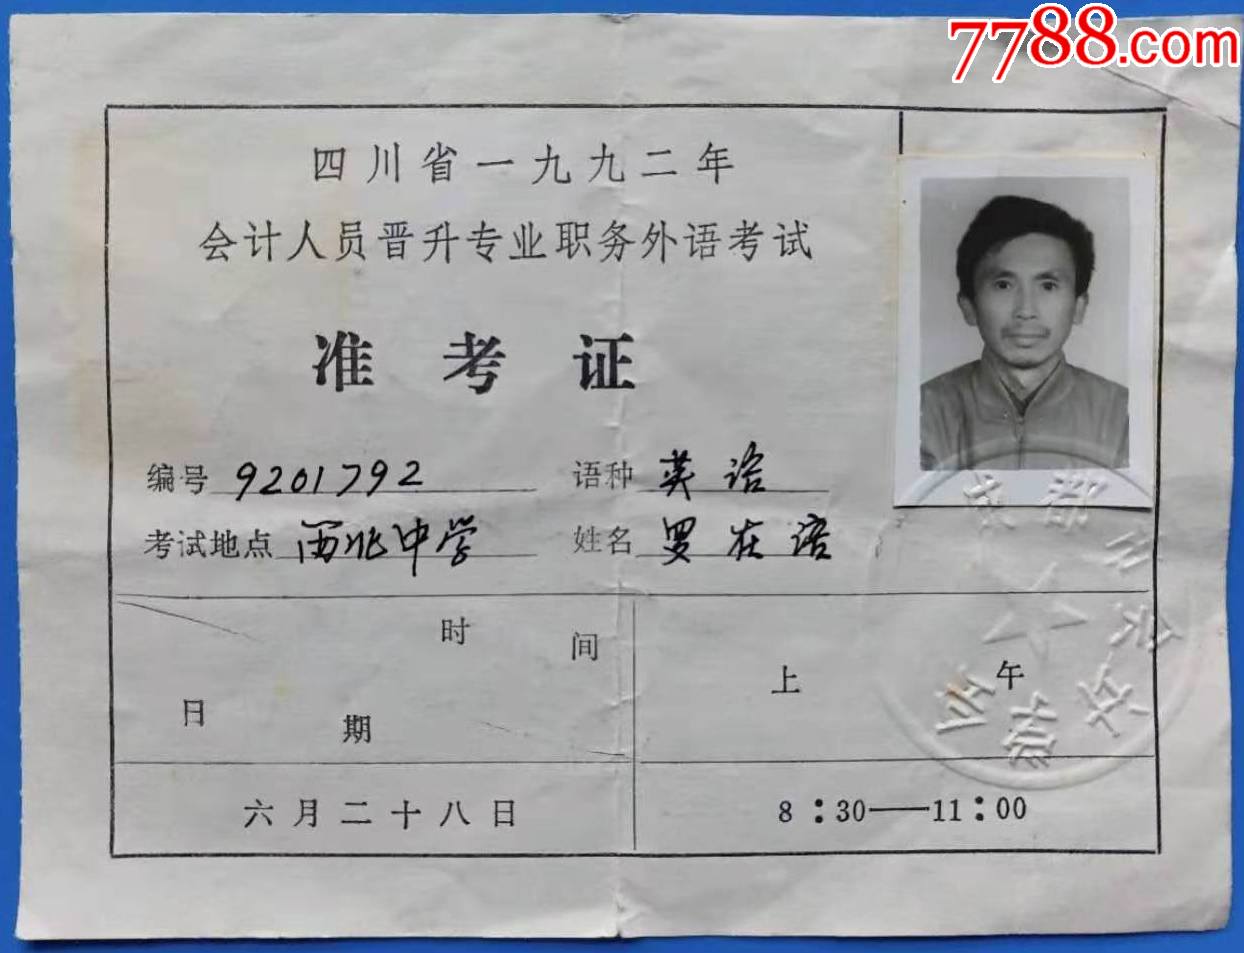 7788.com
四川省一九九二年
会计人员晋升专业职务外语考试
准考证
编号 9201792 语种 英语
考试地点 西北中学 姓名 罗在语
成都
时间
日期
上午
六月二十八日
8:30——11:00